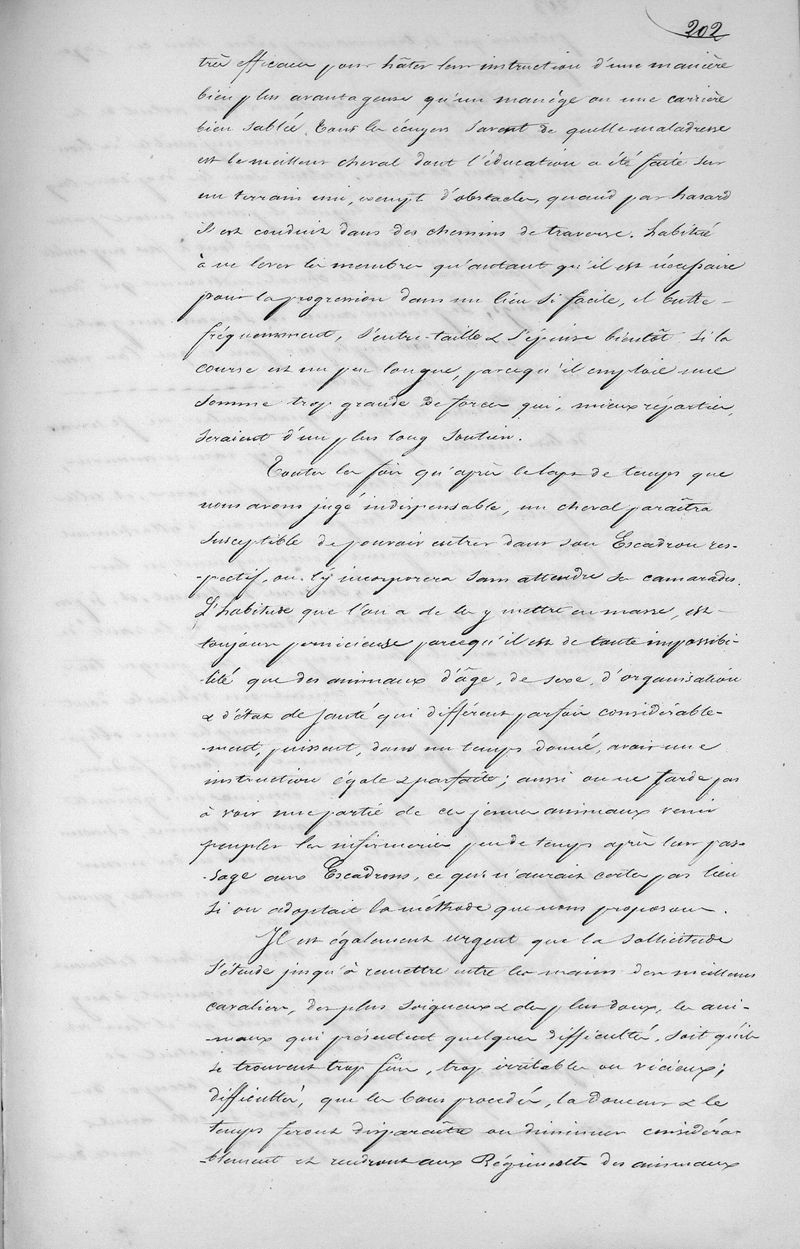 202
très efficace pour hâter leur instruction d'une manière
bien plus avantageuse qu'un manége ou une carrière
bien sablée. Tous les écuyers savent de quelle maladresse
est le meilleur cheval dont l'éducation a été faite sur
un terrain uni, exempt d'obstacles, quand par hasard
il est conduit dans des chemins de traverse. habitué
à ne lever les membres qu'autant qu'il est nécessaire
pour la progression dans un lieu si facile, il butte
fréquemment, s'entre-taille & s'épuise bientôt si la
course est un peu longue, parcequ'il emploie une
somme trop grande de forces qui, mieux réparties,
seraient d'un plus long soutien.
Toutes les fois qu'après le laps de temps que
nous avons jugé indispensable, un cheval paraîtra
susceptible de pouvoir entrer dans son Escadron res-
pectif, on l'y incorporera sans attendre ses camarades.
L'habitude que l'on a de les y mettre en masse, est
toujours pernicieuse parcequ'il est de toute impossibi-
lité que des animaux d'âge, de sexe, d'organisation
& d'état de santé qui différent parfois considérable-
-ment, puissent, dans un temps donné, avoir une
instruction égale & parfaite; aussi on ne tarde pas
à voir une partie de ces jeunes animaux venir
peupler les infirmeries peu de temps après leur pas-
-sage aux Escadrons, ce qui n'aurait certes pas lieu
si on adoptait la méthode que nous proposons.
Il est également urgent que la sollicitude
s'étende jusqu'à remettre entre les mains des meilleurs
cavaliers, des plus soigneux & des plus doux, les ani-
-maux qui présentent quelques difficultés, soit qu'ils
se trouvent trop fins, trop irritables ou vicieux;
difficultés, que les bons procédés, la douceur & le
temps feront disparaître ou diminuer considéra-
-blement et rendront aux Régiments des animaux